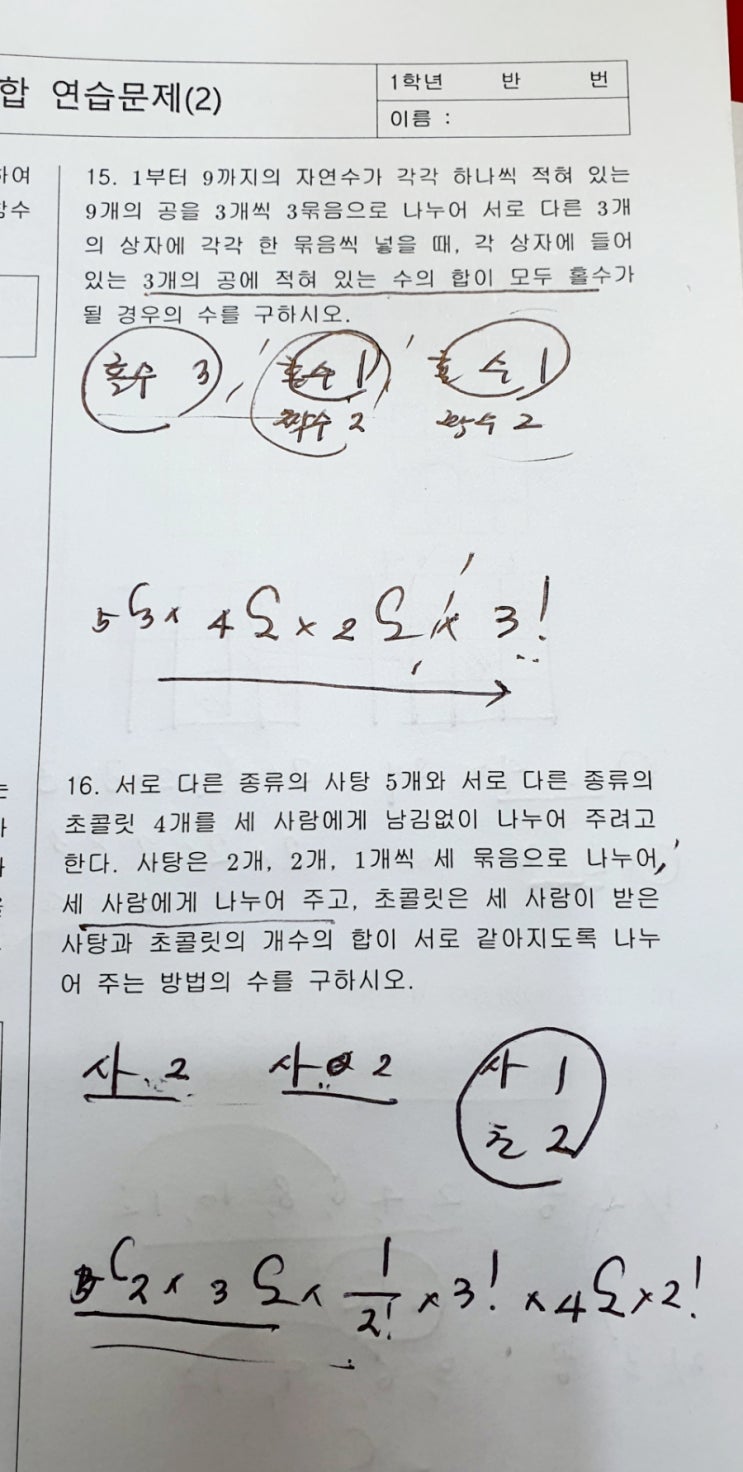 합 연습문제(2)
1학년 반 번
이름 :
하여
15. 1부터 9까지의 자연수가 각각 하나씩 적혀 있는
9개의 공을 3개씩 3묶음으로 나누어 서로 다른 3개
의 상자에 각각 한 묶음씩 넣을 때, 각 상자에 들어
있는 3개의 공에 적혀 있는 수의 합이 모두 홀수가
될 경우의 수를 구하시오.
홀수 3, 홀수 1 홀수 1
짝수 2 짝수 2
5C3 × 4C2 × 2C2 × 3!
16. 서로 다른 종류의 사탕 5개와 서로 다른 종류의
초콜릿 4개를 세 사람에게 남김없이 나누어 주려고
한다. 사탕은 2개, 2개, 1개씩 세 묶음으로 나누어,
세 사람에게 나누어 주고, 초콜릿은 세 사람이 받은
사탕과 초콜릿의 개수의 합이 서로 같아지도록 나누
어 주는 방법의 수를 구하시오.
사 2 사 2 사 1
초 2
5C2 × 3C2 × 1/2! × 3! × 4C2 × 2!